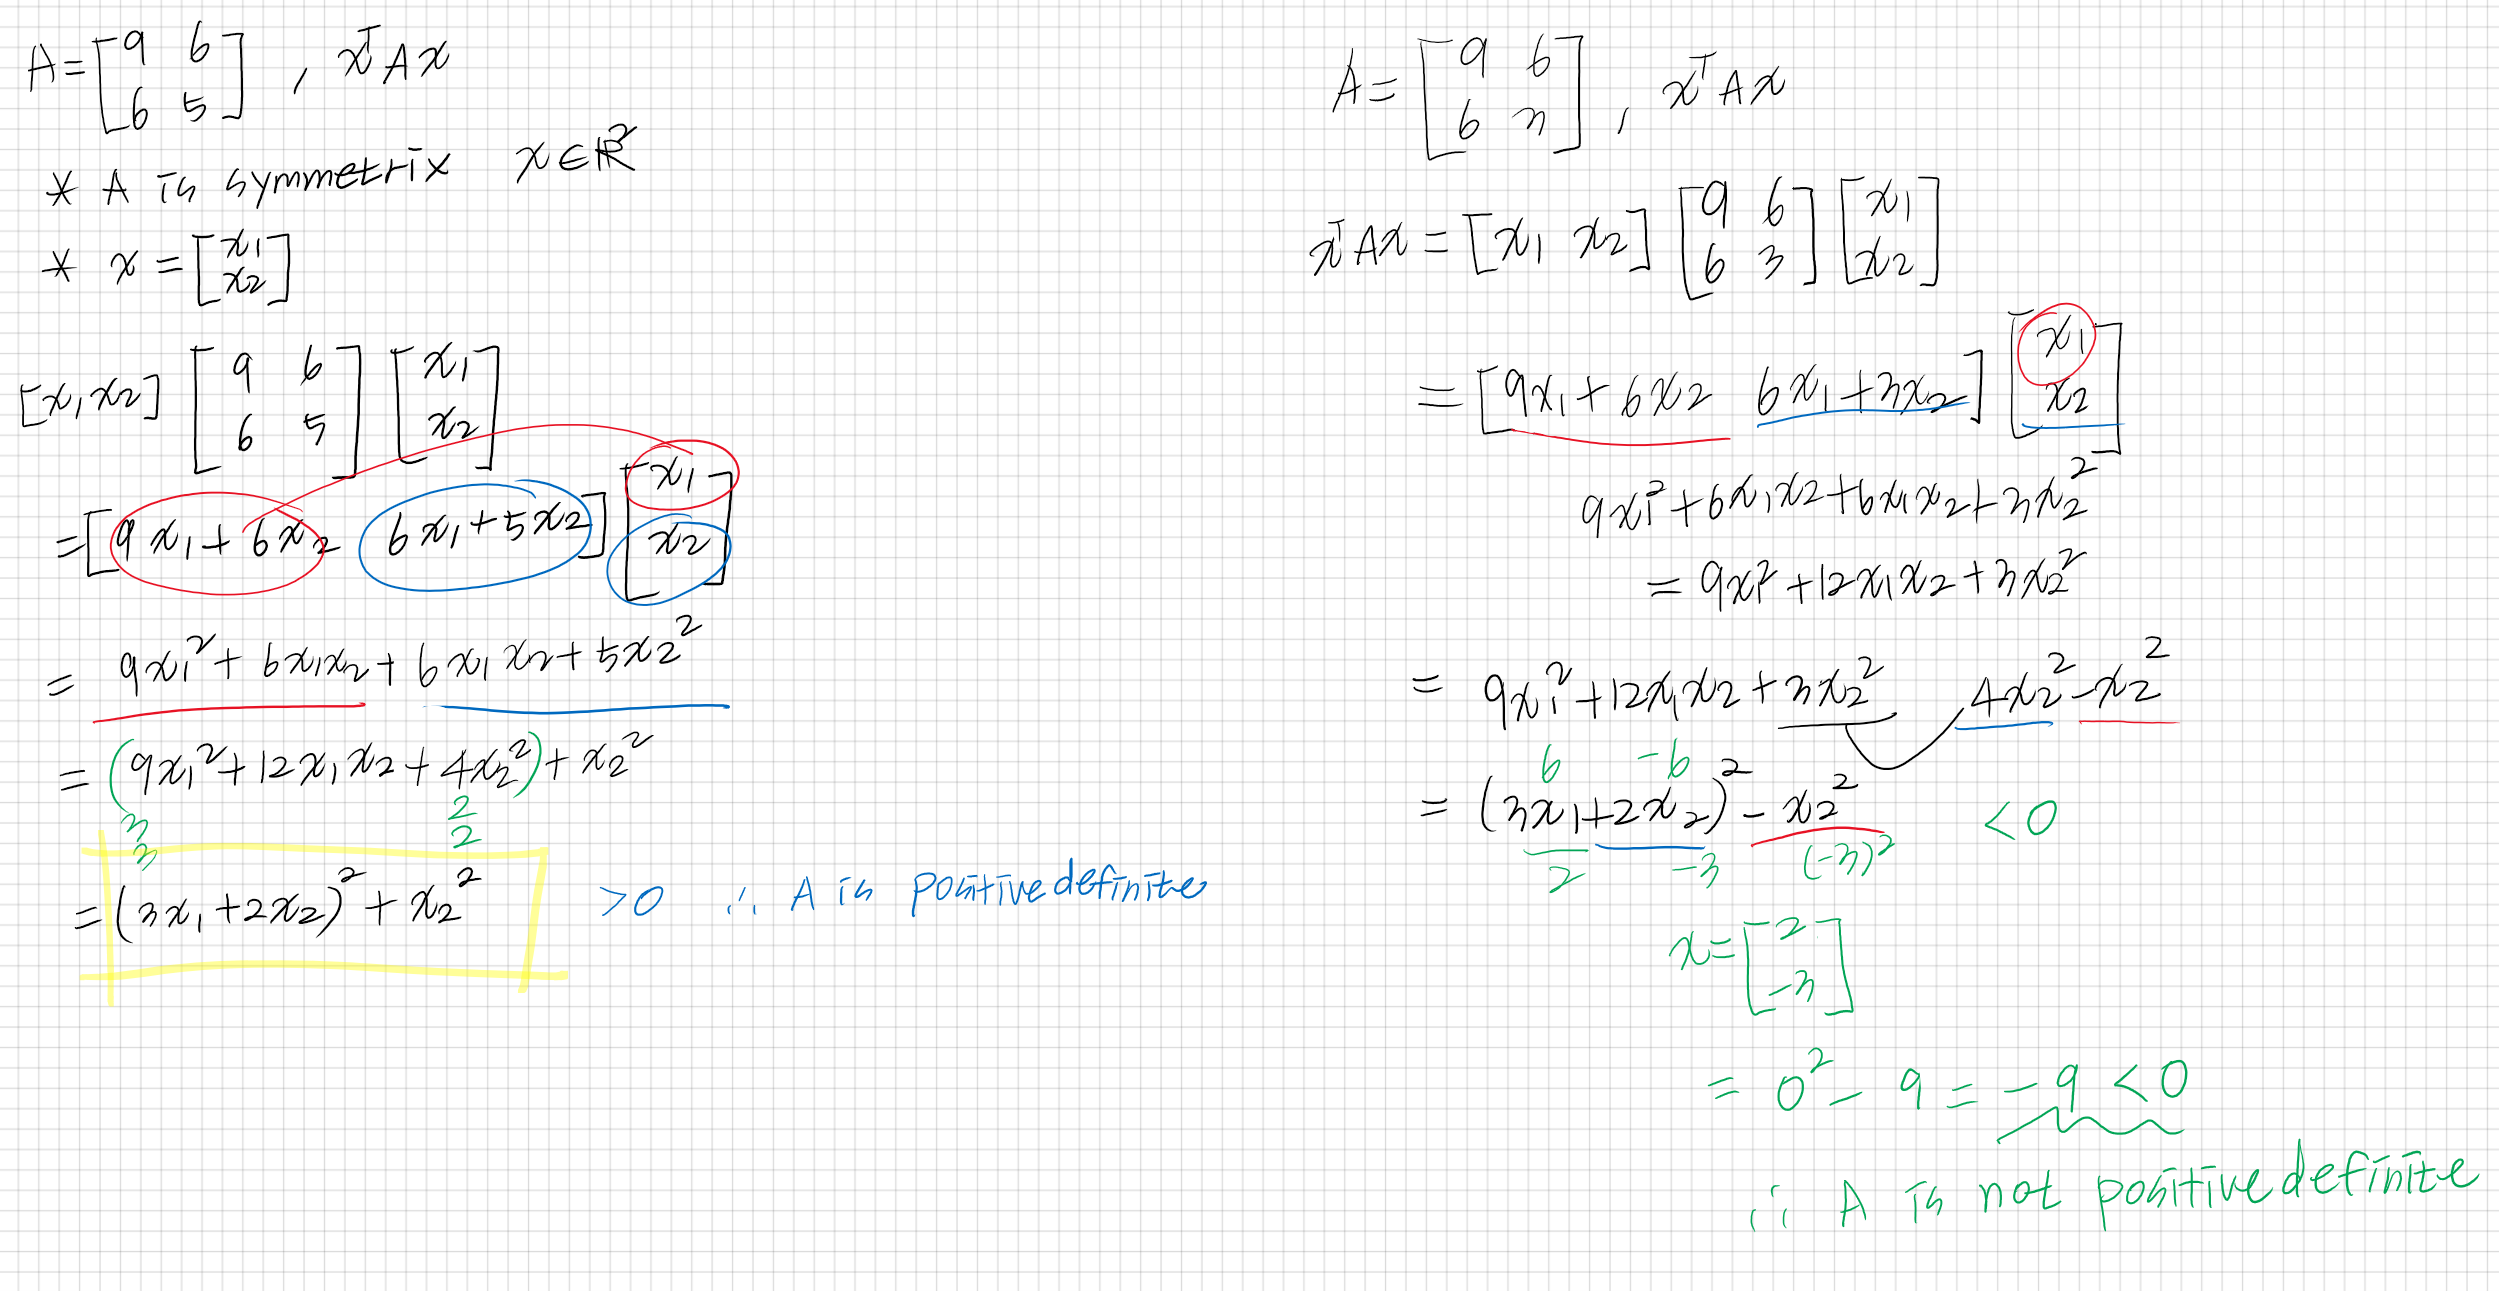 A = [9 6
6 5] , xᵀAx
* A is symmetrix x ∈ ℝ²
* x = [x₁
x₂]
[x₁ x₂] [9 6
6 5] [x₁
x₂]
= [9x₁ + 6x₂ 6x₁ + 5x₂] [x₁
x₂]
= 9x₁² + 6x₁x₂ + 6x₁x₂ + 5x₂²
= (9x₁² + 12x₁x₂ + 4x₂²) + x₂²
3 2
3 2
= (3x₁ + 2x₂)² + x₂² > 0 ∴ A is positive definite
A = [9 6
6 3] , xᵀAx
xᵀAx = [x₁ x₂] [9 6
6 3] [x₁
x₂]
= [9x₁ + 6x₂ 6x₁ + 3x₂] [x₁
x₂]
9x₁² + 6x₁x₂ + 6x₁x₂ + 3x₂²
= 9x₁² + 12x₁x₂ + 3x₂²
= 9x₁² + 12x₁x₂ + 3x₂² 4x₂² - x₂²
6 -6
= (3x₁ + 2x₂)² - x₂² < 0
2 -3 (-3)²
x = [2
-3]
= 0² - 9 = -9 < 0
∴ A is not positive definite